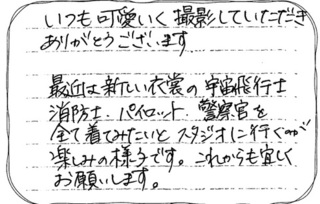 いつも可愛いく撮影していただき
ありがとうございます
最近は新しい衣裳の宇宙飛行士
消防士．パイロット．警察官を
全て着てみたいとスタジオに行くのが
楽しみの様子です。これからも宜しく
お願いします。